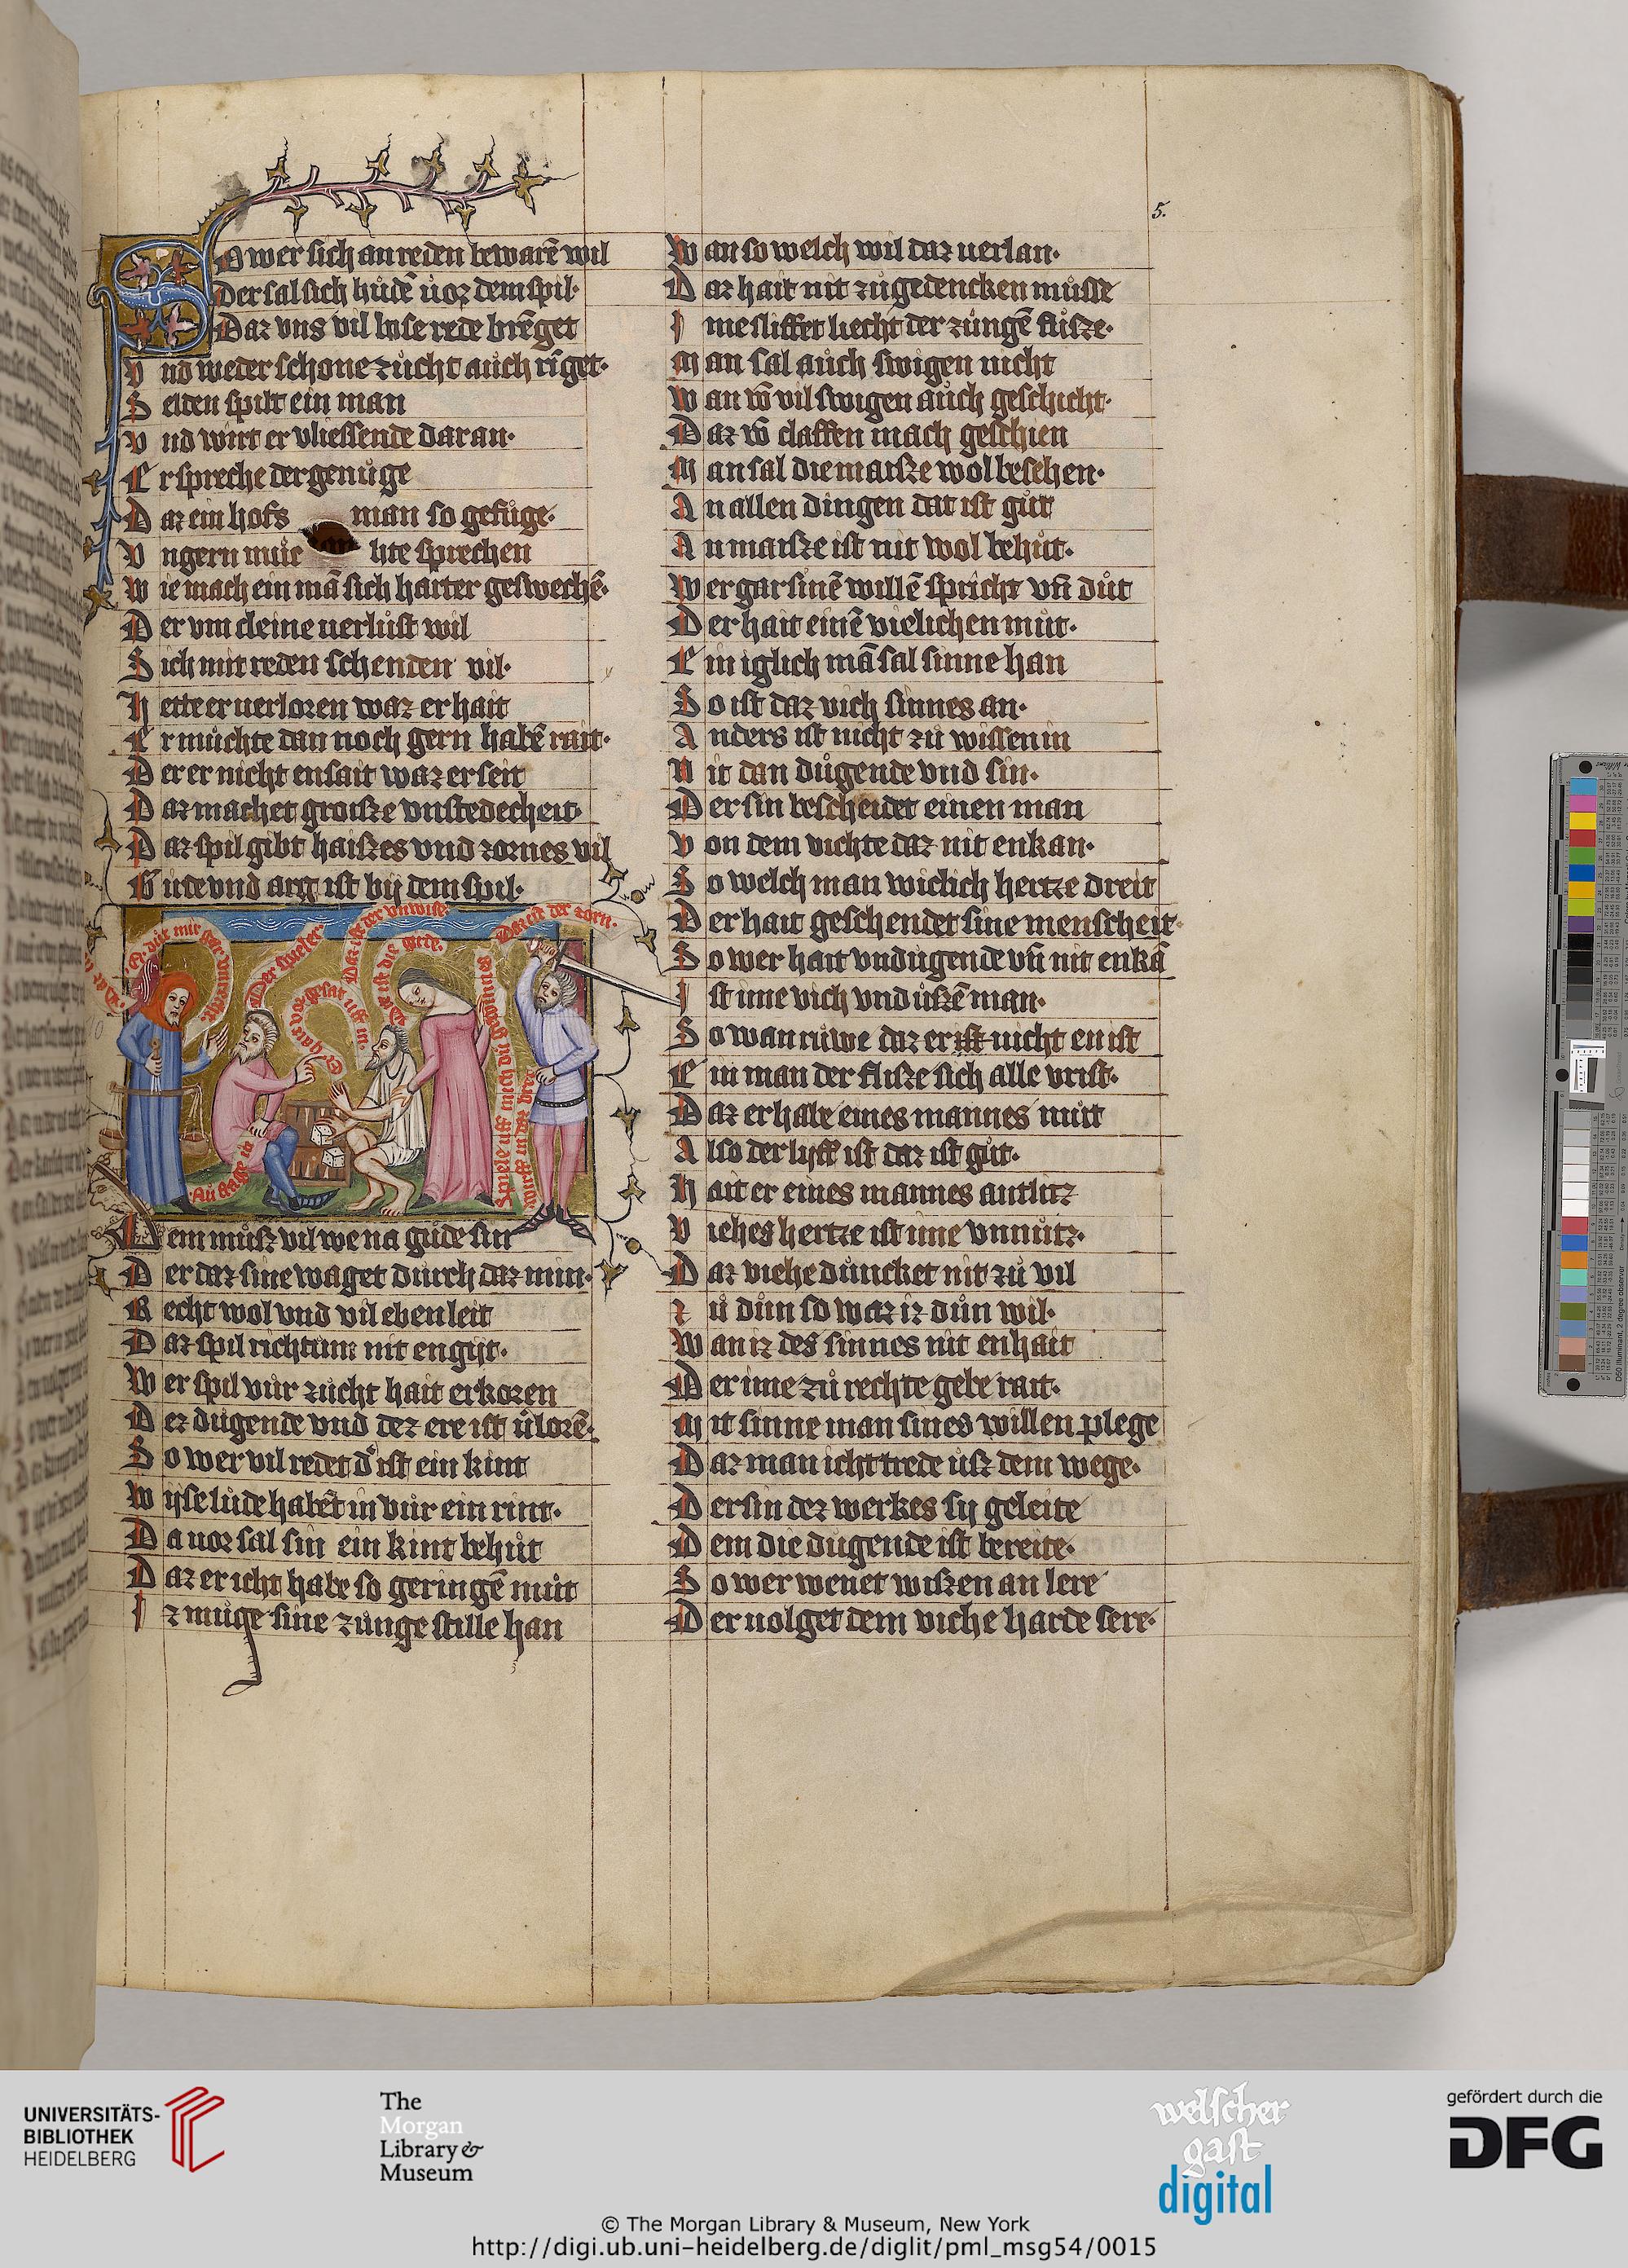 5.
So wer sich an reden bewarē wil
Der sal sich hůdē ůor dem spil·
Daz vns vil bose rede brēget
Vnd weder schone zůcht auch rīget·
Selden spilt ein man
Vnd wirt er vliessende daran·
Er spreche der genůge
Daz ein hofs man so gefůge·
Vngern lite sprechen
Wie mach ein mā sich harter geswechē·
Der vm cleine uerlůst wil
Sich mit reden schenden vil·
Hette er uerloren waz er hait
Er můchte dan noch gern habē rait·
Der er nicht ensait waz er seit
Daz machet groisze vnstedecheit·
Daz spil gibt haiszes vnd zornes vil
Gide vnd arg ist bij dem spil·
Der spieler
Daz ist der vnwise
Daz ist der zorn.
Daz ist die girde.
Er hat daz gesat uff in.
Dem můsz vil we na gůde sin
Der daz sine waget durch daz min·
Recht wol vnd vil eben leit
Daz spil richtum nit engijt·
Wer spil vůr zůcht hait erkoren
Der důgende vnd der ere ist ůlorē·
So wer vil redet d' ist ein kint
Wijse lůde habēt in vůr ein rint·
Da uor sal sin ein kint behůt
Daz er icht habe so geringē můt
Iz můge sine zůnge stille han
Wan so welch wil daz uerlan·
Daz hait nit zůgedencken můsse
Ime sliffet liecht der zůngē fůsze·
Man sal aůch swigen nicht
Wan vō vil swigen aůch geschicht·
Daz vō claffen mach geschien
Man sal die maisze wol besehen·
An allen dingen dat ist gůt
An maisze ist nit wol behůt·
Wer gar sinē willē spricht vn̄ důt
Der hait einē vielichen můt·
Ein iglich mā sal sinne han
So ist daz vich sinnes an·
Anders ist nicht zů wissen in
Nit dan důgende vnd sin·
Der sin bescheidet einen man
Von dem vichte daz nit enkan·
So welch man wiclich hertze dreit
Der hait geschendet sine menscheit·
So wer hait vndůgende vn̄ nit enkā
Ist ime vich vnd ůszē man·
So wan růwe daz er ist nicht en ist
Ein man der flisze sich alle vrist·
Daz er habe eines mannes můt
Also der lijff ist daz ist gůt·
Hait er eines mannes antlitz
Viehes hertze ist ime vnnůtz·
Daz viehe důncket nit zů vil
Zů důn so waz iz důn wil·
Wan iz des sinnes nit enhait
Der ime zů rechte gebe rait·
Mit sinne man sines willen plege
Daz man icht trede ůsz dem wege·
Der sin dez werkes sij geleite
Dem die důgende ist bereite·
So wer wenet wiszen an lere
Der uolget dem viche harde sere·
UNIVERSITÄTS-
BIBLIOTHEK
HEIDELBERG
The
Morgan
Library &
Museum
welscher
gast
digital
gefördert durch die
DFG
© The Morgan Library & Museum, New York
http://digi.ub.uni-heidelberg.de/diglit/pml_msg54/0015